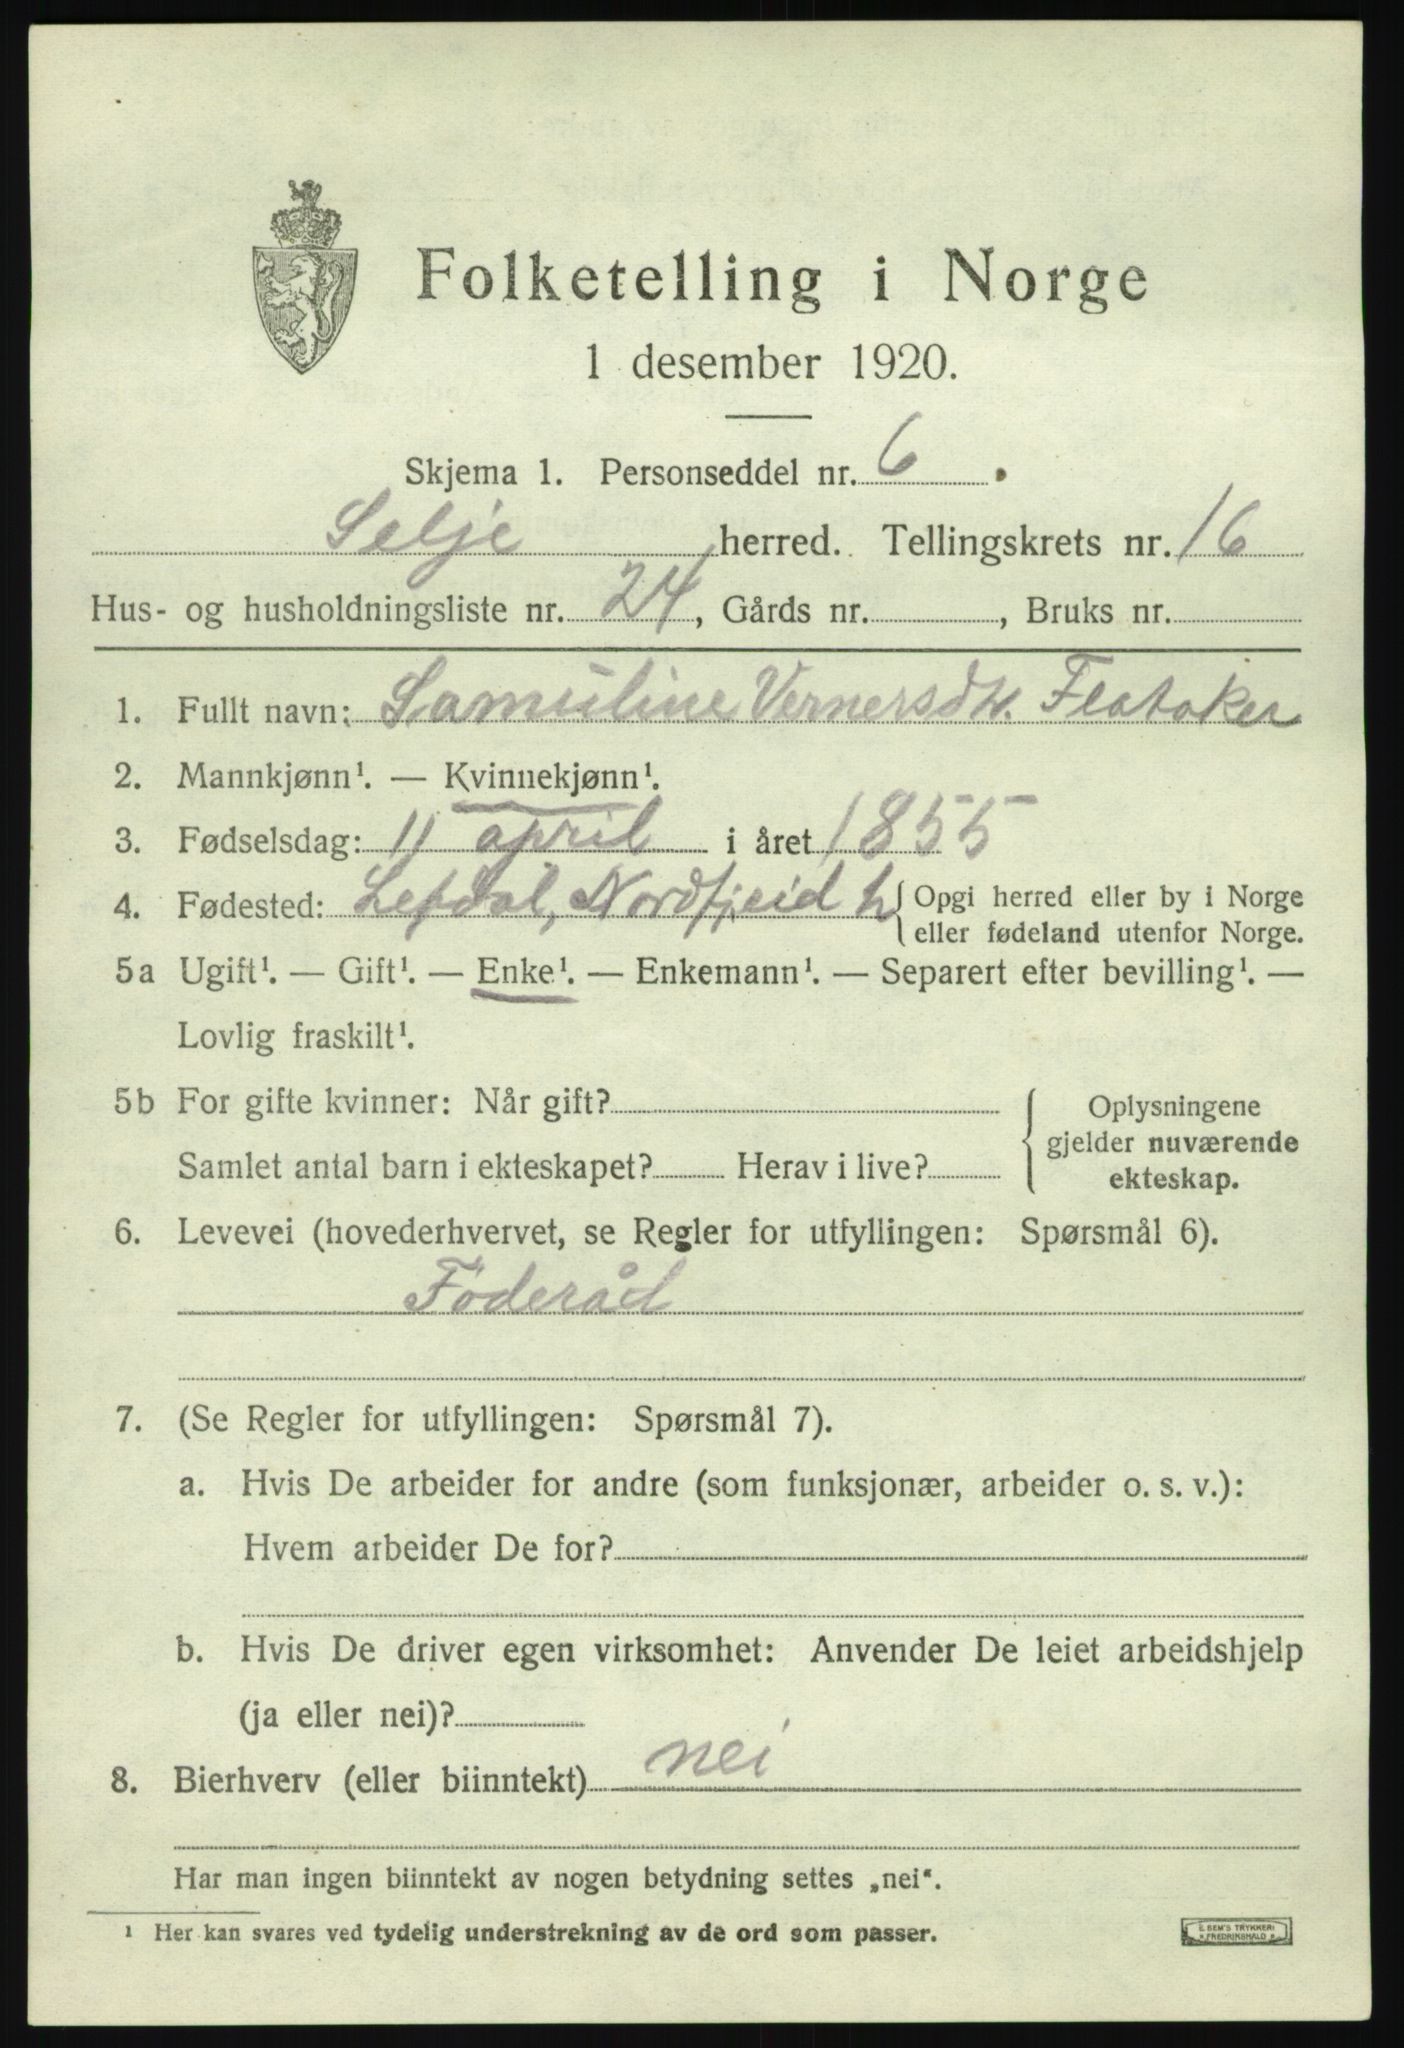 Folketelling i Norge
1 desember 1920.
Skjema 1. Personseddel nr. 6
Selje herred. Tellingskrets nr. 16
Hus- og husholdningsliste nr. 24, Gårds nr. , Bruks nr.
1. Fullt navn: Samuline Vernersdtr. Flataker
2. Mannkjønn¹. — Kvinnekjønn¹.
3. Fødselsdag: 11 april i året 1855
4. Fødested: Lefdal, Nordfjeid h { Opgi herred eller by i Norge
eller fødeland utenfor Norge.
5a Ugift¹. — Gift¹. — Enke¹. — Enkemann¹. — Separert efter bevilling¹. —
Lovlig fraskilt¹.
5b For gifte kvinner: Når gift? { Oplysningene
gjelder nuværende
Samlet antal barn i ekteskapet? Herav i live? ekteskap.
6. Levevei (hovederhvervet, se Regler for utfyllingen: Spørsmål 6).
Föderåd
7. (Se Regler for utfyllingen: Spørsmål 7).
a. Hvis De arbeider for andre (som funksjonær, arbeider o. s. v.):
Hvem arbeider De for?
b. Hvis De driver egen virksomhet: Anvender De leiet arbeidshjelp
(ja eller nei)?
8. Bierhverv (eller biinntekt) nei
Har man ingen biinntekt av nogen betydning settes „nei“.
¹ Her kan svares ved tydelig understrekning av de ord som passer.
E. SEM'S TRYKKERI
FREDRIKSHALD